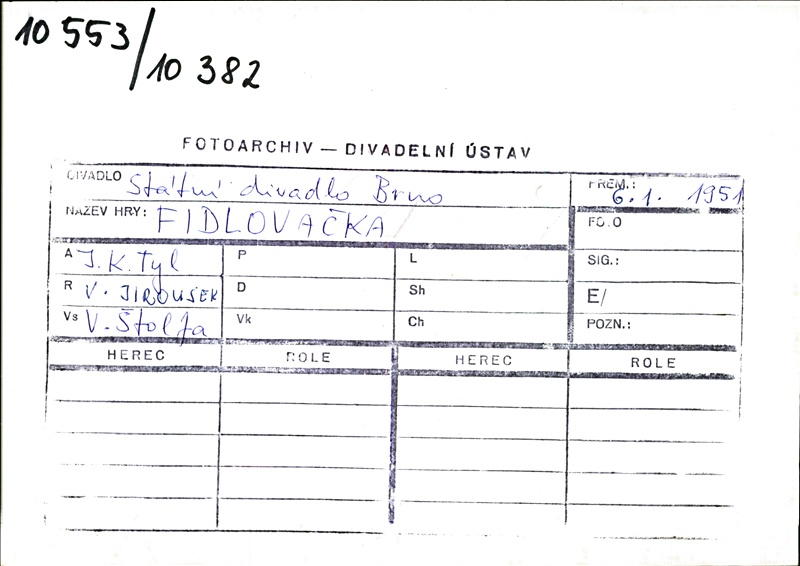 10 553/10 382
FOTOARCHIV — DIVADELNÍ ÚSTAV
DIVADLO Státní divadlo Brno
PREM.: 6. 1. 1951
NÁZEV HRY: FIDLOVAČKA
FOTO
A J. K. Tyl
P
L
SIG.:
R V. JIROUSEK
D
Sh
E/
Vs V. Štolfa
Vk
Ch
POZN.:
HEREC ROLE HEREC ROLE